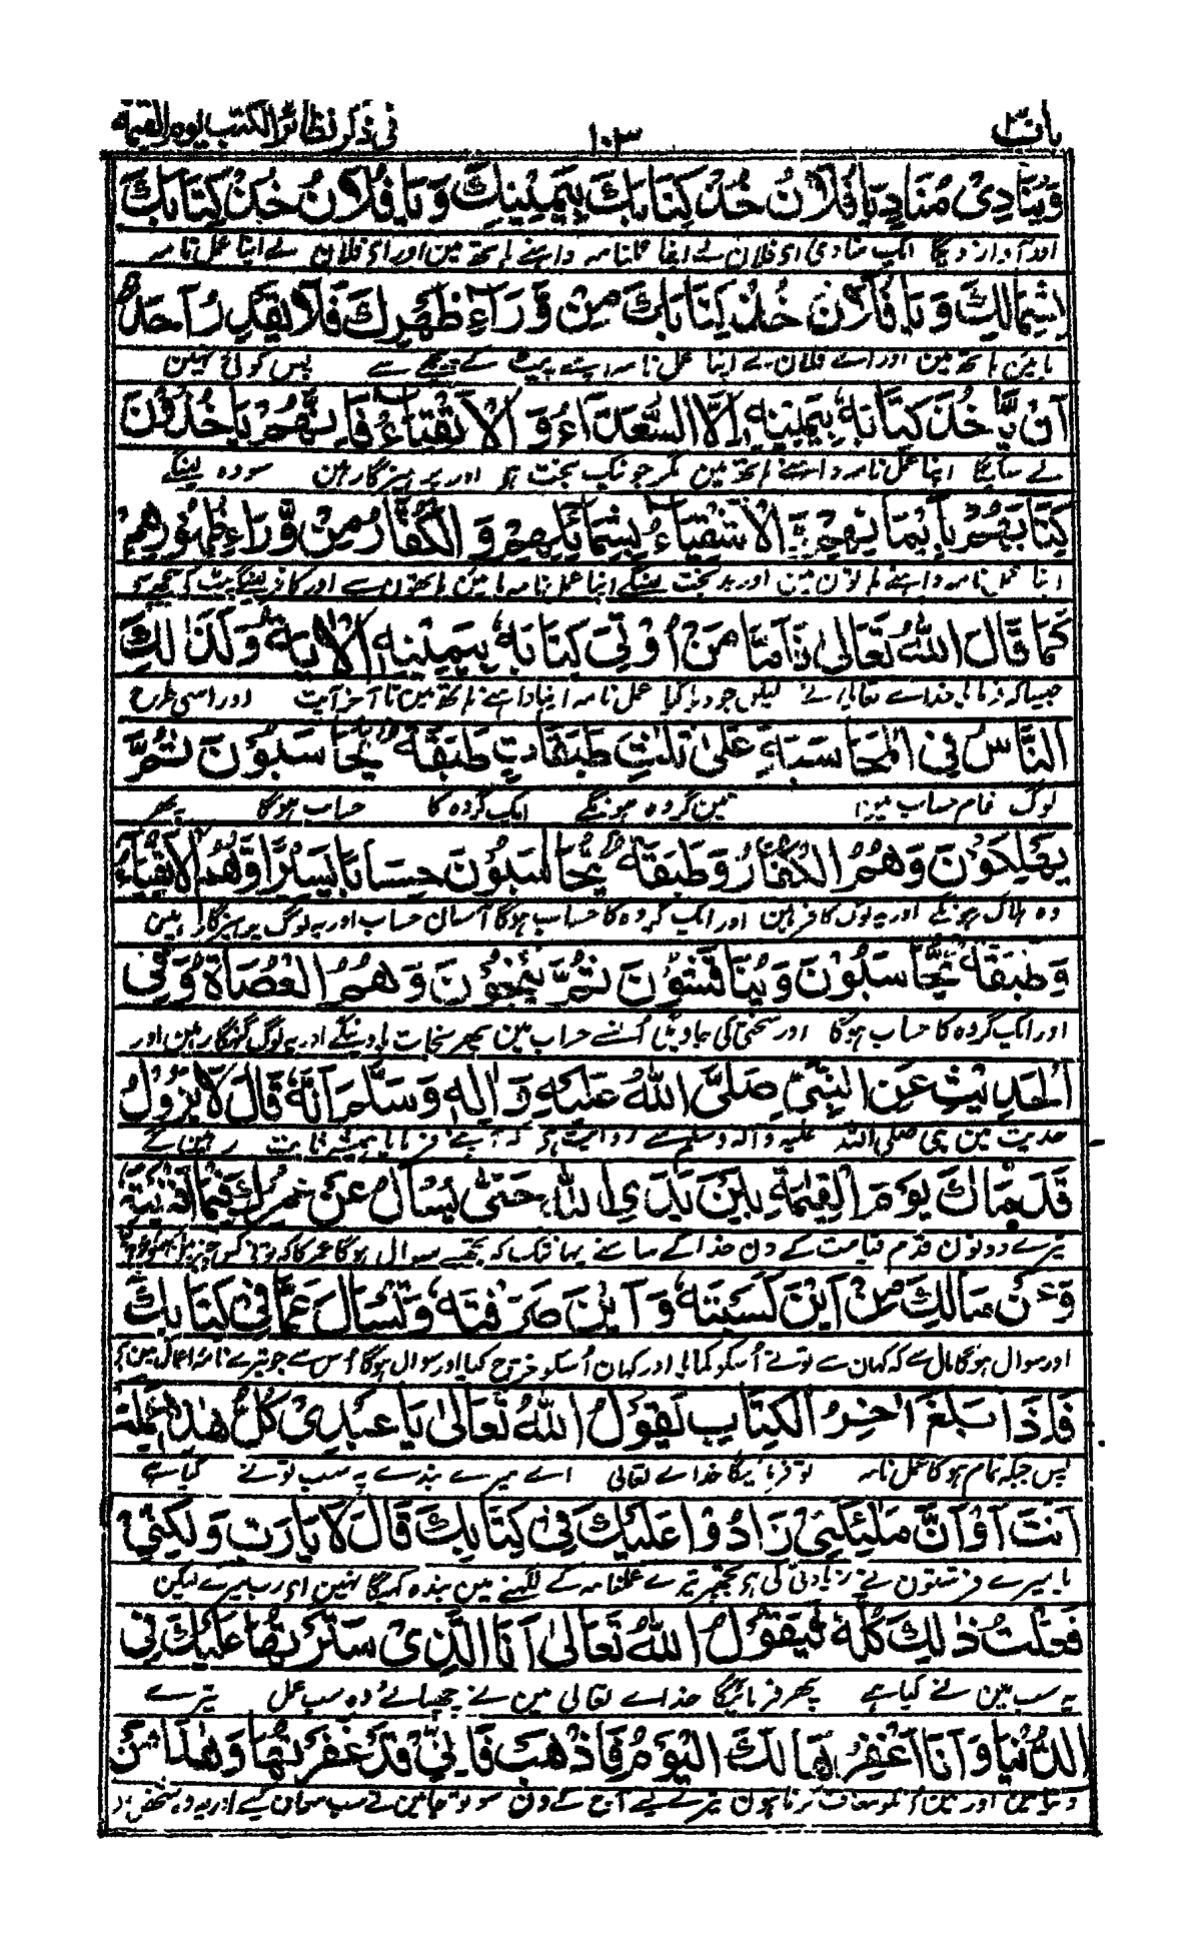 باب ۱۰۳ فی ذکر نظائر الکتب یوم القیمة
وَیُنَادِیْ مُنَادٍ یَا فُلَانُ خُذْ کِتَابَكَ بِیَمِیْنِكَ وَیَا فُلَانُ خُذْ کِتَابَكَ
اور آواز دیگا ایک منادی ای فلان لے اپنا عملنامہ داہنے ہاتھ مین اور ای فلان لے اپنا عمل نامہ
بِشِمَالِكَ وَیَا فُلَانُ خُذْ کِتَابَكَ مِنْ وَّرَاءِ ظَهْرِكَ فَلَا یَقْدِرُ اَحَدٌ
بائین ہاتھ مین اور اے فلان لے اپنا عمل نامہ اپنے پیٹ کے پیچھے سے پس کوئی نہین
اَنْ یَّاْخُذَ کِتَابَهٗ بِیَمِیْنِهٖ اِلَّا السُّعَدَاءُ وَ الْاَتْقِیَاءُ فَاِنَّهُمْ یَاْخُذُوْنَ
لے سکیگا اپنا عمل نامہ داہنے ہاتھ مین مگر جو نیک بخت ہو اور پرہیزگار ہین سو وہ لینگے
کِتَابَهُمْ بِاَیْمَانِهِمْ وَ الْاَشْقِیَاءُ بِشَمَائِلِهِمْ وَ الْکُفَّارُ مِنْ وَّرَاءِ ظُهُوْرِهِمْ
اپنا عمل نامہ داہنے ہاتھون مین اور بد بخت لینگے اپنا عمل نامہ بائین ہاتھون سے اور کافر لینگے پیٹ کے پیچھے سے
کَمَا قَالَ اللهُ تَعَالیٰ فَاَمَّا مَنْ اُوْتِیَ کِتَابَهٗ بِیَمِیْنِهٖ الْاٰیَة وَکَذٰلِكَ
جیسا کہ فرمایا خداے تعالیٰ نے لیکن جو دیا گیا عمل نامہ اپنا داہنے ہاتھ مین تا آخر آیت اور اسی طرح
النَّاسُ فِی الْمُحَاسَبَةِ عَلیٰ ثَلٰثِ طَبَقَاتٍ طَبَقَةٌ یُحَاسَبُوْنَ ثُمَّ
لوگ مقام حساب مین تین گروہ ہونگے ایک گروہ کا حساب ہوگا پھر
یَهْلِکُوْنَ وَهُمُ الْکُفَّارُ وَطَبَقَةٌ یُحَاسَبُوْنَ حِسَابًا یَّسِیْرًا وَّهُمُ الْاَتْقِیَاءُ
وہ ہلاک ہونگے اور یہ لوگ کافر ہین اور ایک گروہ کا حساب ہوگا آسان حساب اور یہ لوگ پرہیزگار ہین
وَطَبَقَةٌ یُّحَاسَبُوْنَ وَیُنَاقَشُوْنَ ثُمَّ یَنْجُوْنَ وَهُمُ الْعُصَاةُ وَفِی
اور ایک گروہ کا حساب ہوگا اور سختی کی جاویگی اُنسے حساب مین پھر نجات پاوینگے اور یہ لوگ گنہگار ہین اور
الْحَدِیْثِ عَنِ النَّبِیِّ صَلَّی اللهُ عَلَیْهِ وَاٰلِهٖ وَسَلَّمَ اَنَّهٗ قَالَ لَا یَزُوْلُ
حدیث مین نبی صلی اللہ علیہ وآلہ وسلم سے روایت ہے کہ آپنے فرمایا ہمیشہ ثابت رہینگے
قَدَمَاكَ یَوْمَ الْقِیٰمَةِ بَیْنَ یَدَیِ اللهِ حَتّٰی یُسْاَلُ عَنْ عُمْرِكَ فِیْمَا اَفْنَیْتَهٗ
تیرے دونون قدم قیامت کے دن خدا کے سامنے یہانتک کہ تجھسے سوال ہوگا عمر کا کہ تونے کس چیز مین
وَعَنْ مَالِكَ مِنْ اَیْنَ کَسَبْتَهٗ وَ اَیْنَ صَرَفْتَهٗ وَتُسْاَلُ عَمَّا فِیْ کِتَابِكَ
اور سوال ہوگا مال سے کہ کہان سے تونے اُسکو کمایا اور کہان اُسکو خرچ کیا اور سوال ہوگا اُس سے جو تیرے نامۂ اعمال مین ہے
فَاِذَا بَلَغَ اٰخِرُ الْکِتَابِ یَقُوْلُ اللهُ تَعَالیٰ یَا عَبْدِیْ کُلُّ هٰذَا عَمِلْتَهٗ
پس جبکہ تمام ہوگا عمل نامہ تو فرمائیگا خداے تعالی اے میرے بندے یہ سب تونے کیا ہے
اَنْتَ اَوْ اَنَّ مَلٰئِکَتِیْ زَادُوْا عَلَیْكَ فِیْ کِتَابِكَ قَالَ لَا یَا رَبِّ وَلٰکِنِّیْ
یا میرے فرشتون نے زیادتی کی ہے تجھپر تیرے عملنامہ کے لکھنے مین بندہ کہیگا نہین ای رب میرے لیکن
فَعَلْتُ ذٰلِكَ کُلَّهٗ فَیَقُوْلُ اللهُ تَعَالیٰ اَنَا الَّذِیْ سَتَرْتُهَا عَلَیْكَ فِی
یہ سب مین نے کیا ہے پھر فرمائیگا خداے تعالی مین نے چھپائے وہ سب عمل تیرے
الدُّنْیَا وَ اَنَا اَغْفِرُهَا لَكَ الْیَوْمَ فَاذْهَبْ فَاِنِّیْ قَدْ غَفَرْتُهَا وَهٰذَا مَنْ
دنیا مین اور مین اُنکو معاف کرتا ہون تیرے لیے آج کے دن سو تو جا مین نے سب معاف کیے اور یہ وہ شخص